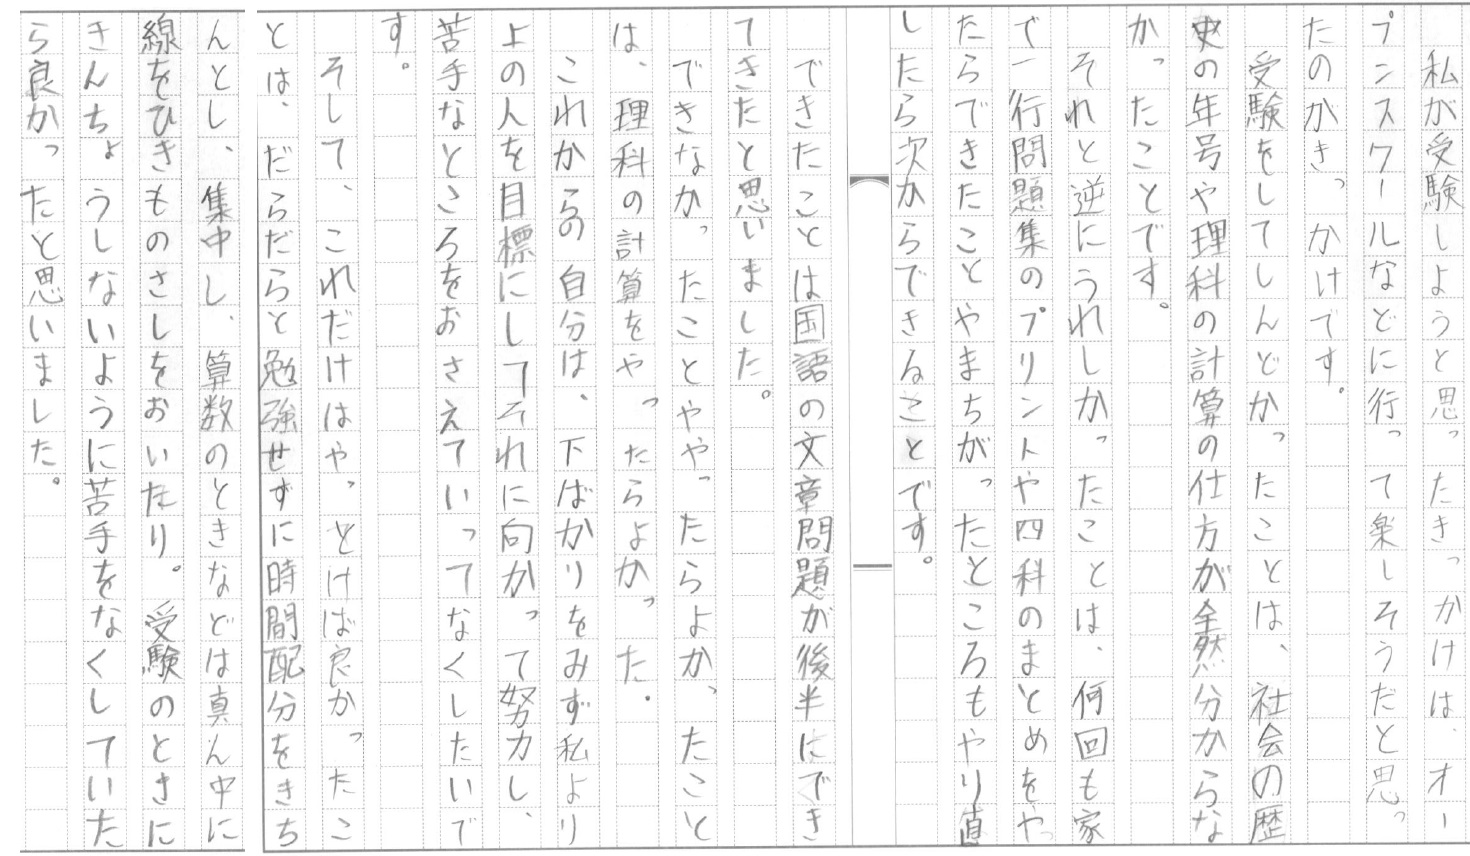 私が受験しようと思ったきっかけは、オー
プンスクールなどに行って楽しそうだと思っ
たのがきっかけです。
受験をしてしんどかったことは、社会の歴
史の年号や理科の計算の仕方が全然分からな
かったことです。
それと逆にうれしかったことは、何回も家
で一行問題集のプリントや四科のまとめをや
たらできたことやまちがったところもやり直
したら次からできることです。
できたことは国語の文章問題が後半にでき
てきたと思いました。
できなかったことややったらよかったこと
は、理科の計算をやったらよかった。
これからの自分は、下ばかりをみず私より
上の人を目標にしてそれに向かって努力し、
苦手なところをおさえていってなくしたいで
す。
そして、これだけはやっとけば良かったこ
とは、だらだらと勉強せずに時間配分をきち
んとし、集中し、算数のときなどは真ん中に
線をひきものさしをおいたり。受験のときに
きんちょうしないように苦手をなくしていた
ら良かったと思いました。